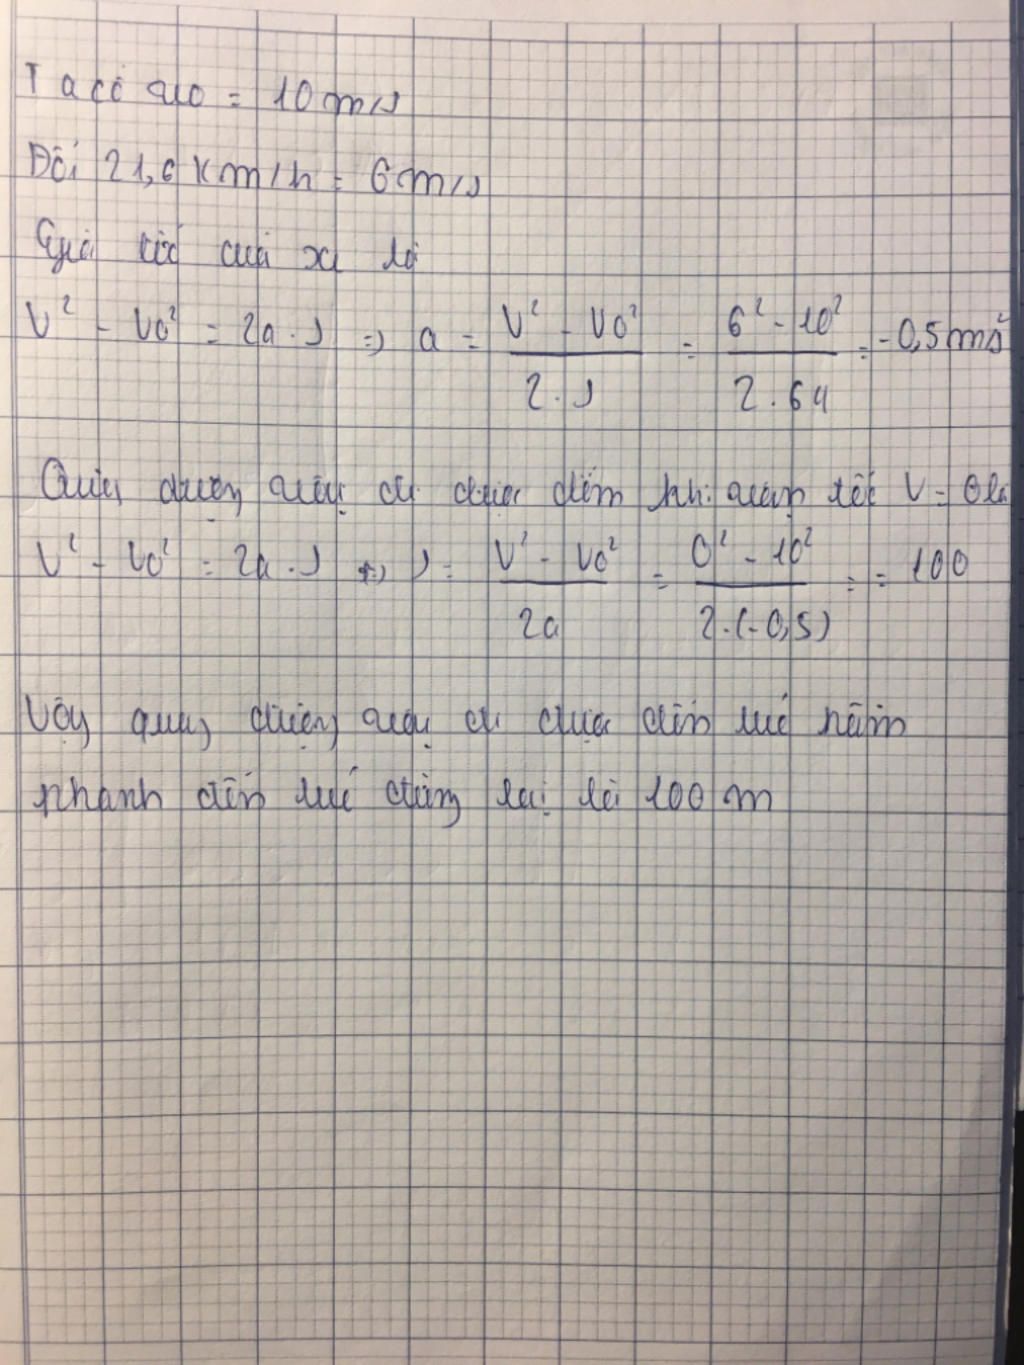 Ta có v0 = 10 m/s
Đổi 21,6 Km/h = 6m/s
Gia tốc của xe là
V² - V0² = 2a.s => a = (V² - V0²)/(2.s) = (6² - 10²)/(2.64) = -0,5 m/s²
Quãng đường đi được đến khi vận tốc V = 0 là
V² - V0² = 2a.s => s = (V² - V0²)/(2a) = (0² - 10²)/(2.(-0,5)) = = 100
Vậy quãng đường đi được đến lúc hãm
phanh đến lúc dừng lại là 100 m